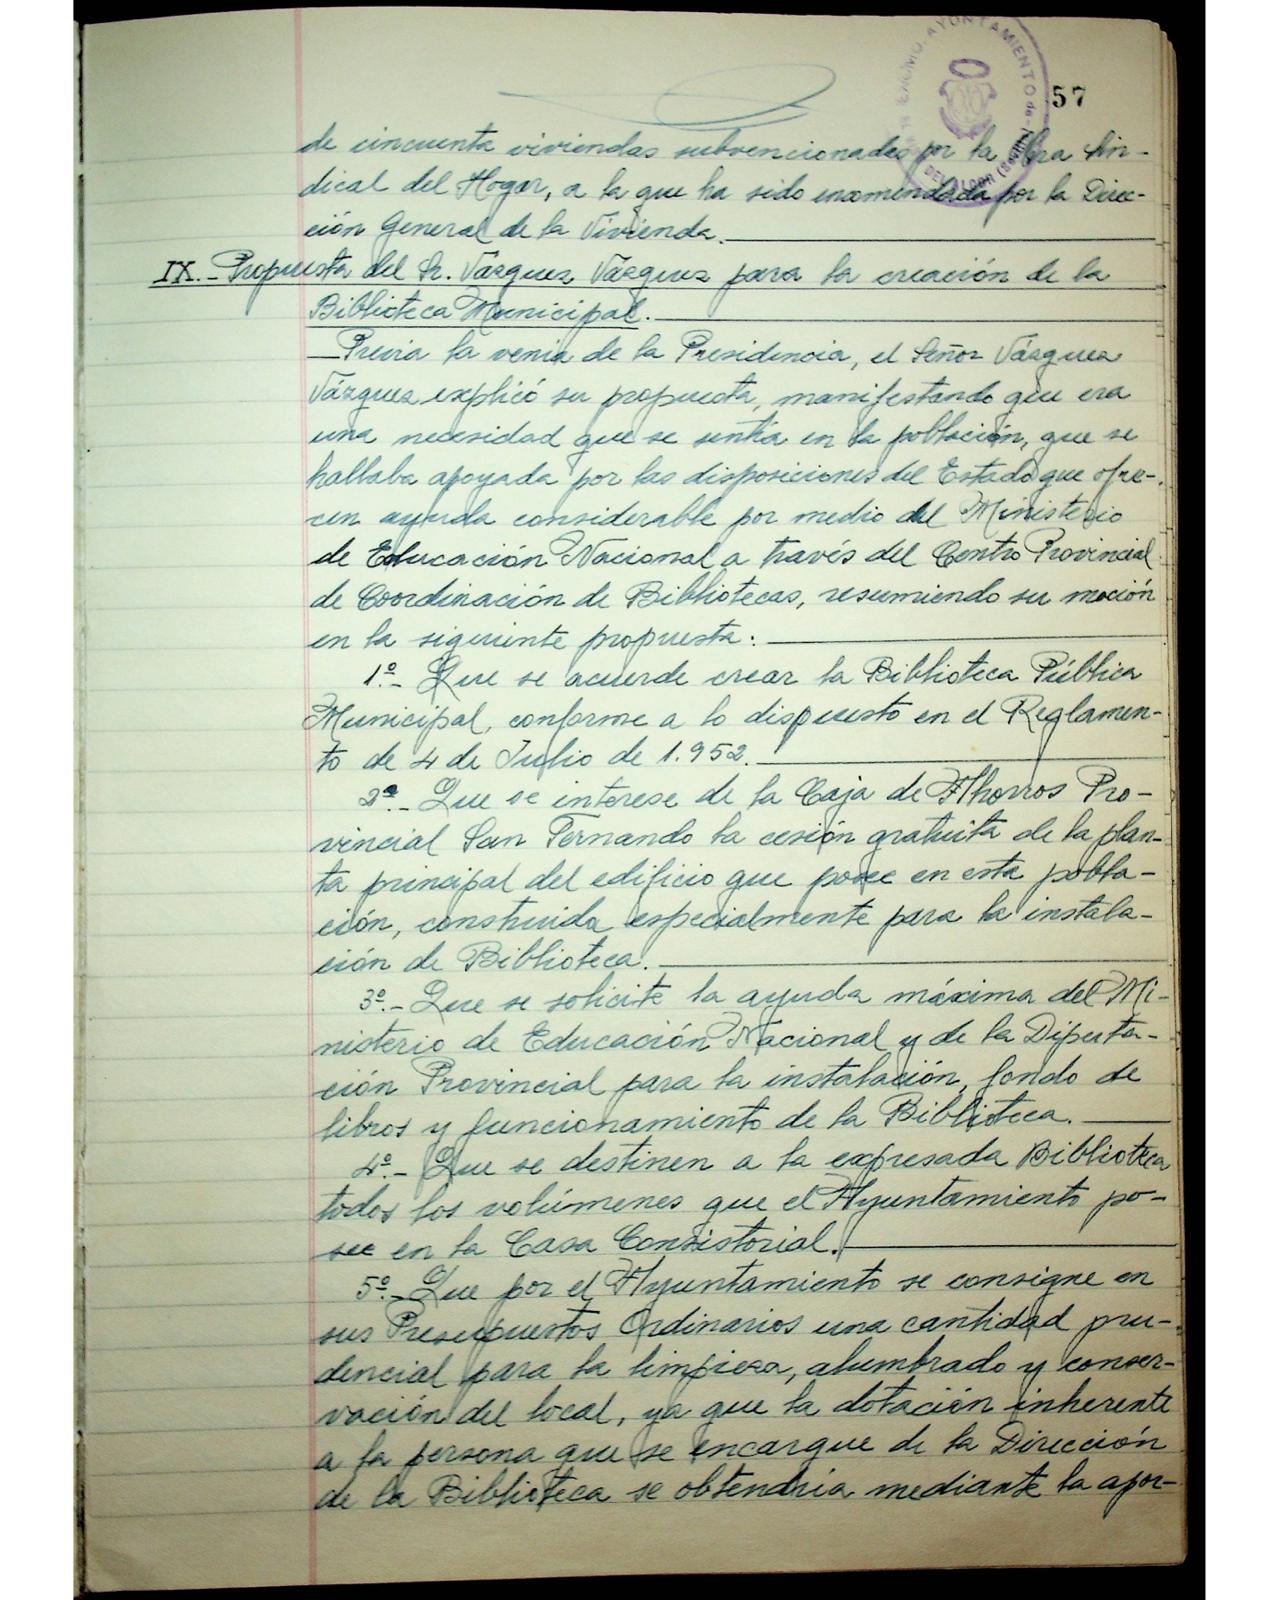 57
de cincuenta viviendas subvencionadas por la Obra Sin-
dical del Hogar, a la que ha sido encomendada por la Direc-
ción General de la Vivienda.
IX.- Propuesta del Sr. Vázquez Vázquez para la creación de la
Biblioteca Municipal.
Previa la venia de la Presidencia, el Señor Vázquez
Vázquez explicó su propuesta, manifestando que era
una necesidad que se sentía en la población, que se
hallaba apoyada por las disposiciones del Estado que ofre-
cen ayuda considerable por medio del Ministerio
de Educación Nacional a través del Centro Provincial
de Coordinación de Bibliotecas, resumiendo su moción
en la siguiente propuesta:
1º.- Que se acuerde crear la Biblioteca Pública
Municipal, conforme a lo dispuesto en el Reglamen-
to de 4 de Julio de 1.952.
2º.- Que se interese de la Caja de Ahorros Pro-
vincial San Fernando la cesión gratuita de la plan-
ta principal del edificio que posee en esta pobla-
ción, construida especialmente para la instala-
ción de Biblioteca.
3º.- Que se solicite la ayuda máxima del Mi-
nisterio de Educación Nacional y de la Diputa-
ción Provincial para la instalación, fondo de
libros y funcionamiento de la Biblioteca.
4º.- Que se destinen a la expresada Biblioteca
todos los volúmenes que el Ayuntamiento po-
see en la Casa Consistorial.
5º.- Que por el Ayuntamiento se consigne en
sus Presupuestos Ordinarios una cantidad pru-
dencial para la limpieza, alumbrado y conser-
vación del local, ya que la dotación inherente
a la persona que se encargue de la Dirección
de la Biblioteca se obtendría mediante la apor-
AYUNTAMIENTO de
DEL ALCOR (Sevilla)